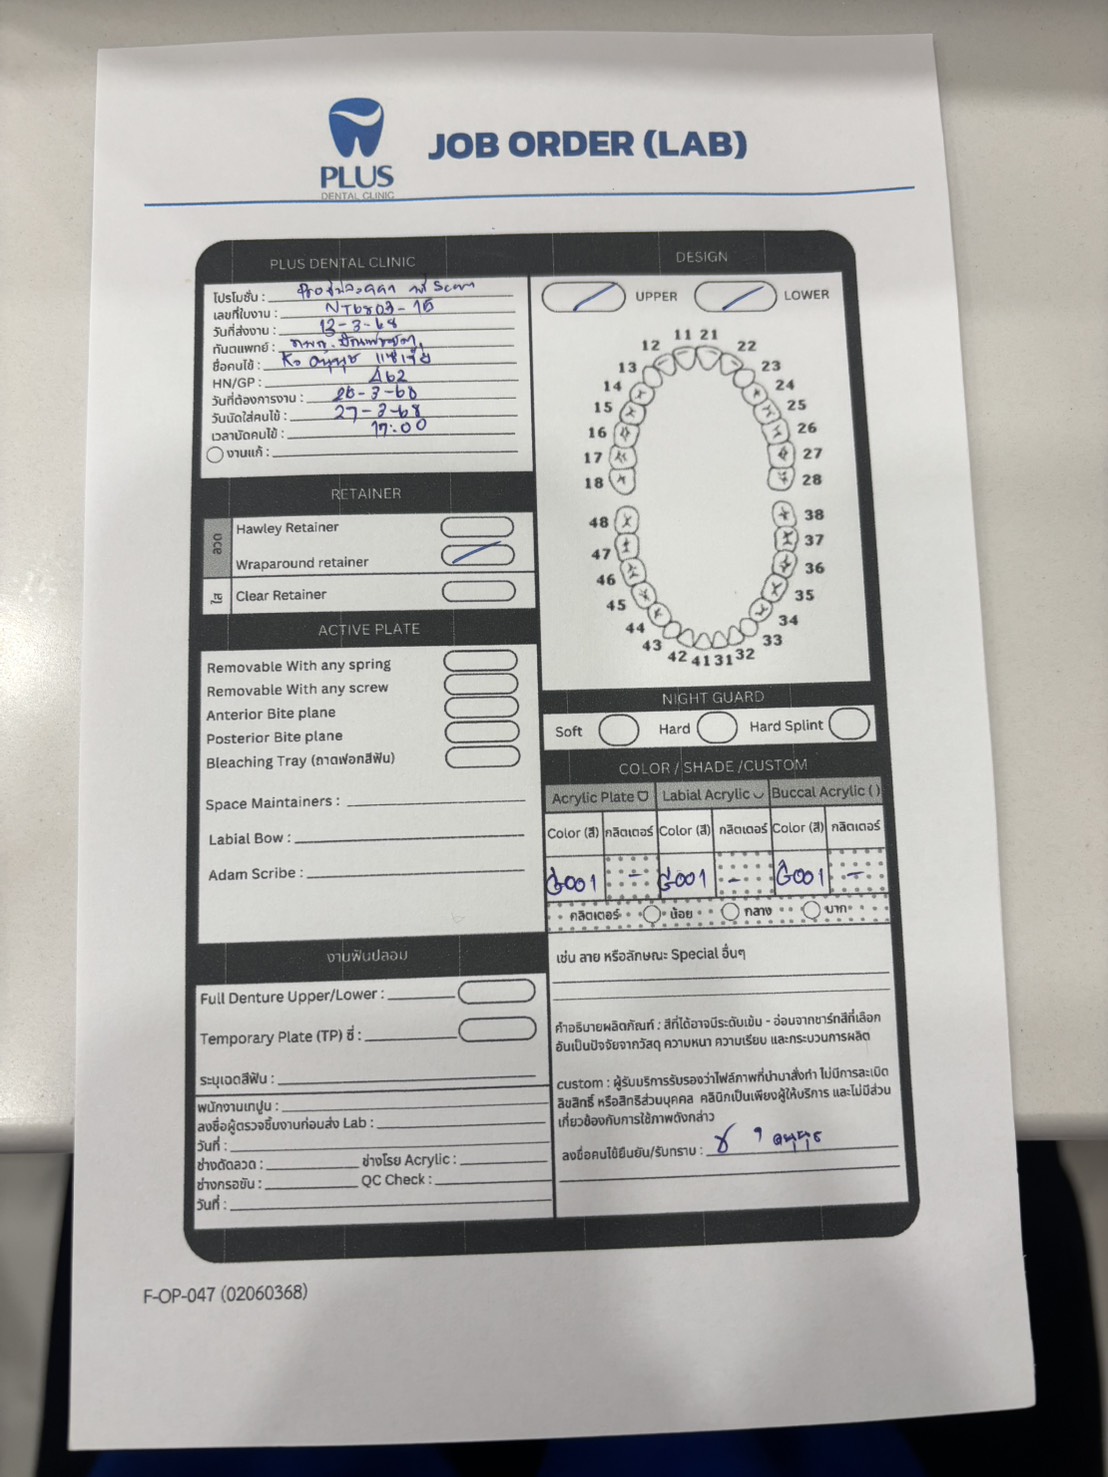 PLUS
DENTAL CLINIC
JOB ORDER (LAB)
PLUS DENTAL CLINIC
โปรโมชั่น : Scan
เลขที่ใบงาน : NT6803-15
วันที่ส่งงาน : 12-3-68
ทันตแพทย์ :
ชื่อคนไข้ :
HN/GP : A62
วันที่ต้องการงาน : 26-3-68
วันนัดใส่คนไข้ : 27-3-68
เวลานัดคนไข้ : 17:00
งานแก้ :
RETAINER
ลวด
Hawley Retainer
Wraparound retainer
ใส
Clear Retainer
ACTIVE PLATE
Removable With any spring
Removable With any screw
Anterior Bite plane
Posterior Bite plane
Bleaching Tray (ถาดฟอกสีฟัน)
Space Maintainers :
Labial Bow :
Adam Scribe :
งานฟันปลอม
Full Denture Upper/Lower :
Temporary Plate (TP) ซี่ :
ระบุเฉดสีฟัน :
พนักงานเทปูน :
ลงชื่อผู้ตรวจชิ้นงานก่อนส่ง Lab :
วันที่ :
ช่างดัดลวด : ช่างโรย Acrylic :
ช่างกรอขัน : QC Check :
วันที่ :
DESIGN
UPPER LOWER
11 21
12 22
13 23
14 24
15 25
16 26
17 27
18 28
48 38
47 37
46 36
45 35
44 34
43 33
42 41 31 32
NIGHT GUARD
Soft Hard Hard Splint
COLOR / SHADE /CUSTOM
Acrylic Plate Labial Acrylic Buccal Acrylic ( )
Color (สี) กลิตเตอร์ Color (สี) กลิตเตอร์ Color (สี) กลิตเตอร์
G001 - G001 - G001 -
กลิตเตอร์ น้อย กลาง มาก
เช่น ลาย หรือลักษณะ Special อื่นๆ
คำอธิบายผลิตภัณฑ์ : สีที่ได้อาจมีระดับเข้ม - อ่อนจากชาร์ทสีที่เลือก
อันเป็นปัจจัยจากวัสดุ ความหนา ความเรียบ และกระบวนการผลิต
custom : ผู้รับบริการรับรองว่าไฟล์ภาพที่นำมาสั่งทำ ไม่มีการละเมิด
ลิขสิทธิ์ หรือสิทธิส่วนบุคคล คลินิกเป็นเพียงผู้ให้บริการ และไม่มีส่วน
เกี่ยวข้องกับการใช้ภาพดังกล่าว
ลงชื่อคนไข้ยืนยัน/รับทราบ :
F-OP-047 (02060368)